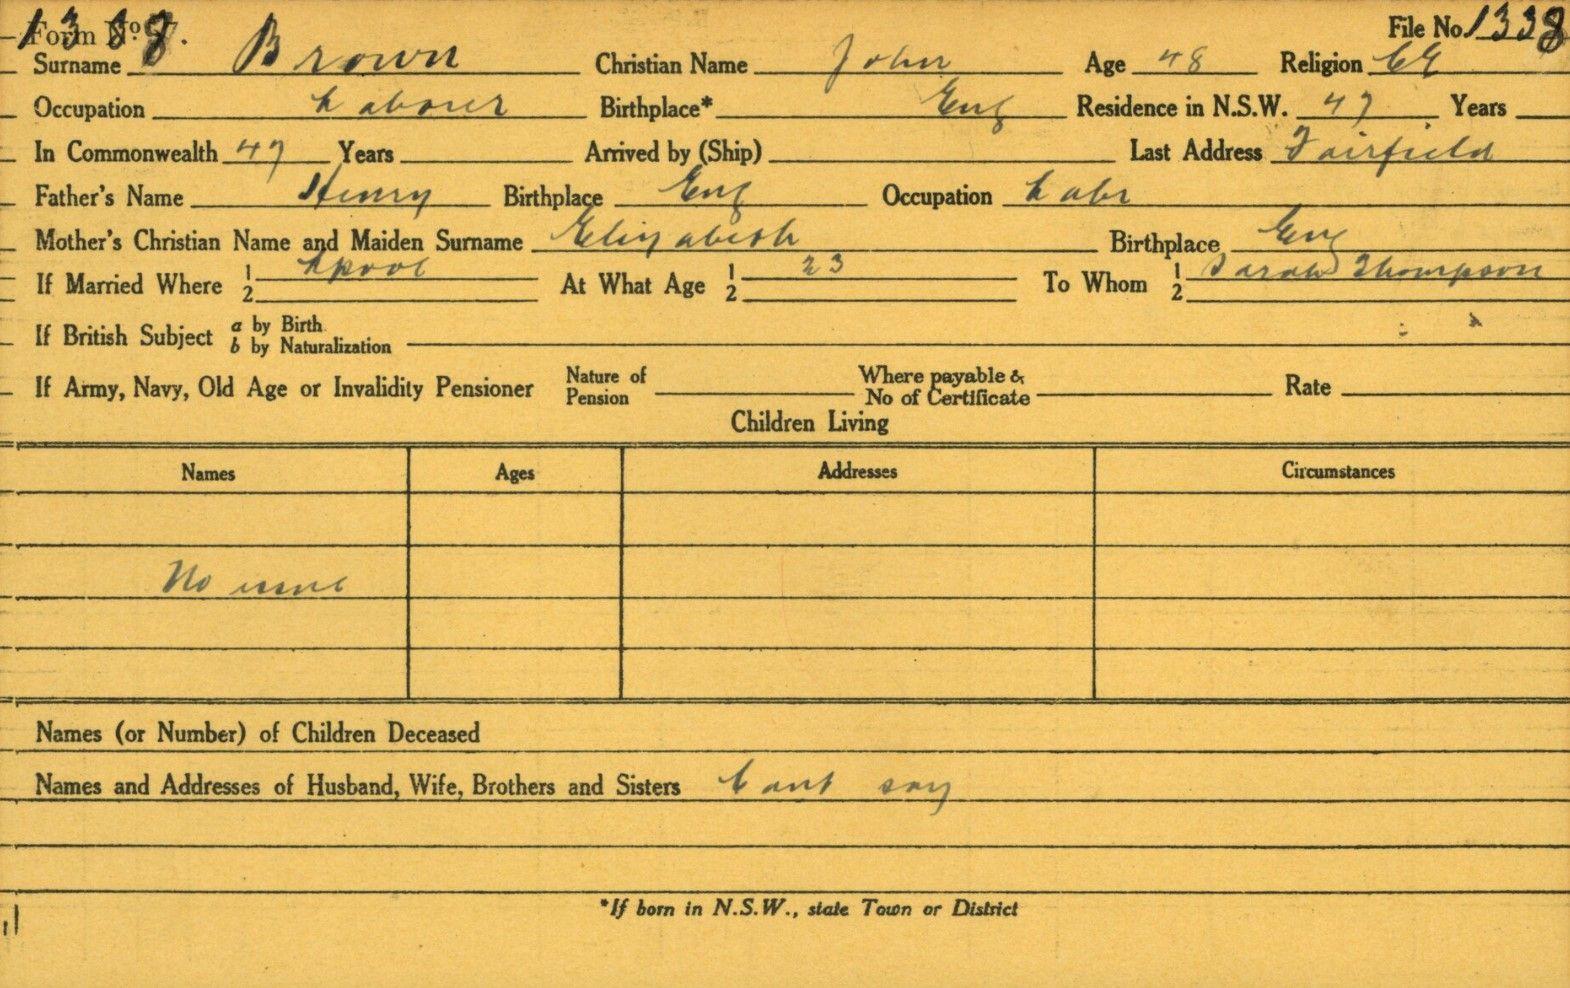 1338
Form No. 7. File No. 1338
Surname Brown Christian Name John Age 48 Religion CE
Occupation Laborer Birthplace* Eng Residence in N.S.W. 47 Years
In Commonwealth 47 Years Arrived by (Ship) Last Address Fairfield
Father's Name Henry Birthplace Eng Occupation Labr
Mother's Christian Name and Maiden Surname Elizabeth Birthplace Eng
If Married Where 1 Lpool At What Age 1 23 To Whom 1 Sarah Thompson
2 2 2
If British Subject a by Birth
b by Naturalization
If Army, Navy, Old Age or Invalidity Pensioner Nature of Pension Where payable & No of Certificate Rate
Children Living
Names Ages Addresses Circumstances
No issue
Names (or Number) of Children Deceased
Names and Addresses of Husband, Wife, Brothers and Sisters Cant say
*If born in N.S.W., state Town or District